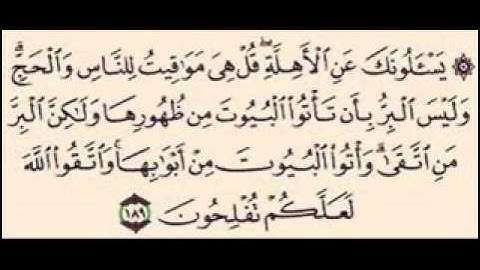 ۞ يَسْـَٔلُونَكَ عَنِ ٱلْأَهِلَّةِۖ قُلْ هِىَ مَوَٰقِيتُ لِلنَّاسِ وَٱلْحَجِّۗ
وَلَيْسَ ٱلْبِرُّ بِأَن تَأْتُوا۟ ٱلْبُيُوتَ مِن ظُهُورِهَا وَلَـٰكِنَّ ٱلْبِرَّ
مَنِ ٱتَّقَىٰۗ وَأْتُوا۟ ٱلْبُيُوتَ مِنْ أَبْوَٰبِهَاۚ وَٱتَّقُوا۟ ٱللَّهَ
لَعَلَّكُمْ تُفْلِحُونَ ١٨٩